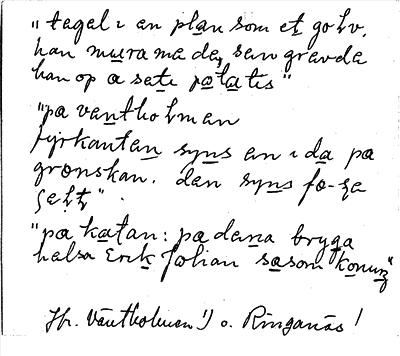 "tegel ı en plan som et golv.
han mura ma de, sen gravda
han op o sate potatıs"
"pa vantholman
fyrkanten syns en ı da pa
gronskan. den syns fo-
"pa katan: pa dena bryga
halsa Erik Johan sasom konung"
Jfr. Väntholmen 1) o. Ringanäs!